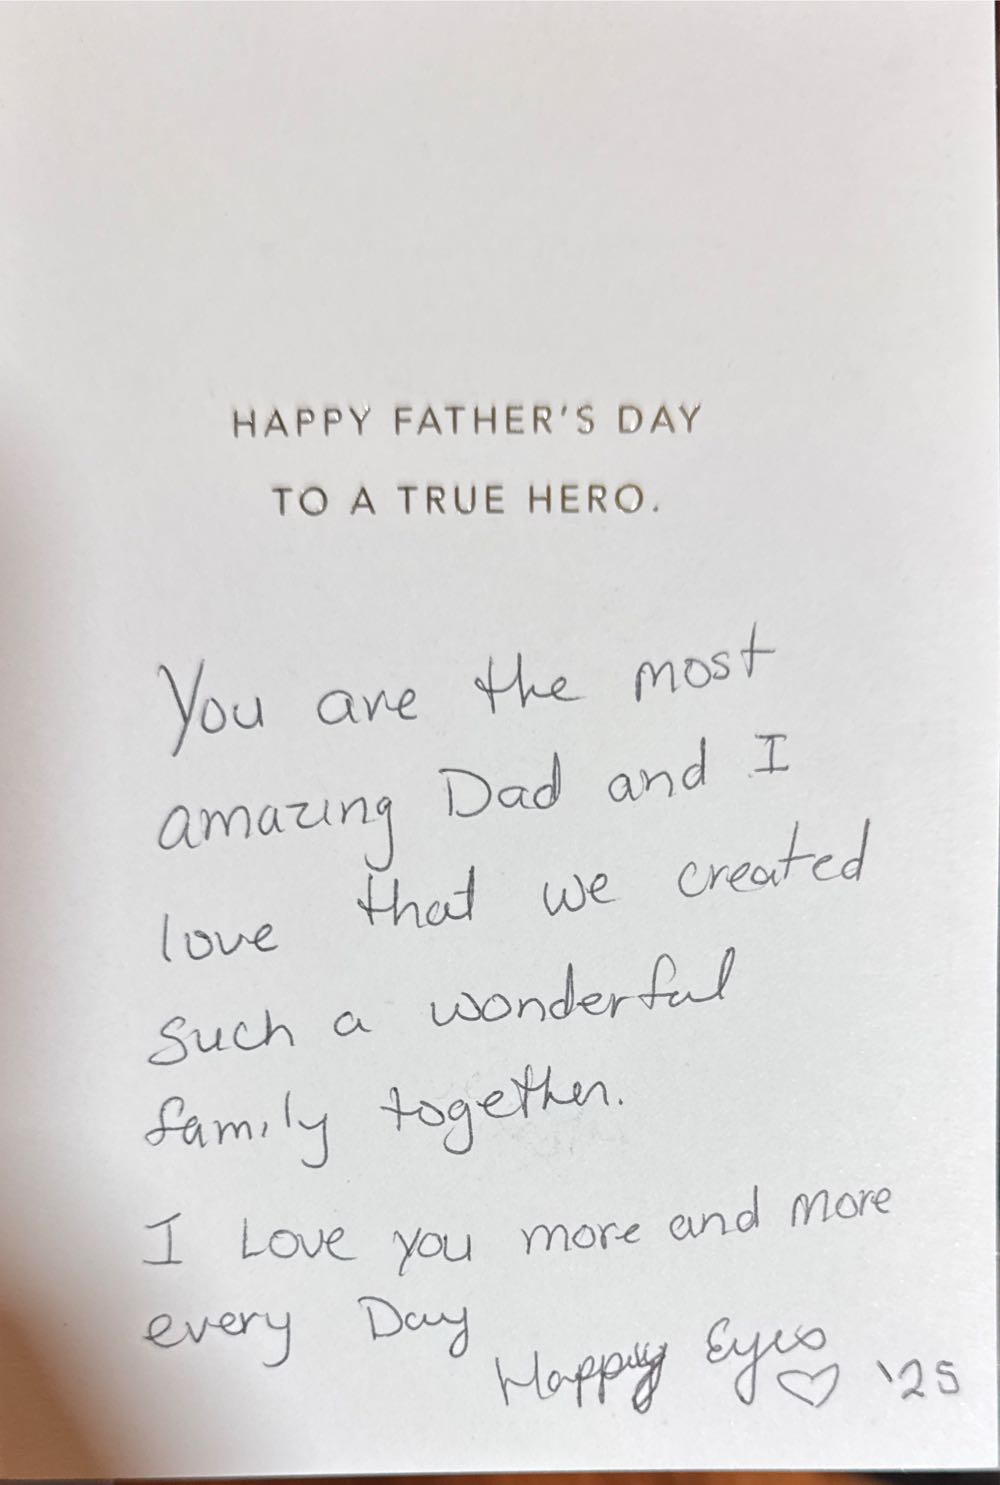 HAPPY FATHER'S DAY
TO A TRUE HERO.
You are the most
amazing Dad and I
love that we created
such a wonderful
family together.
I Love you more and more
every Day
Happy Eyes
♡ '25